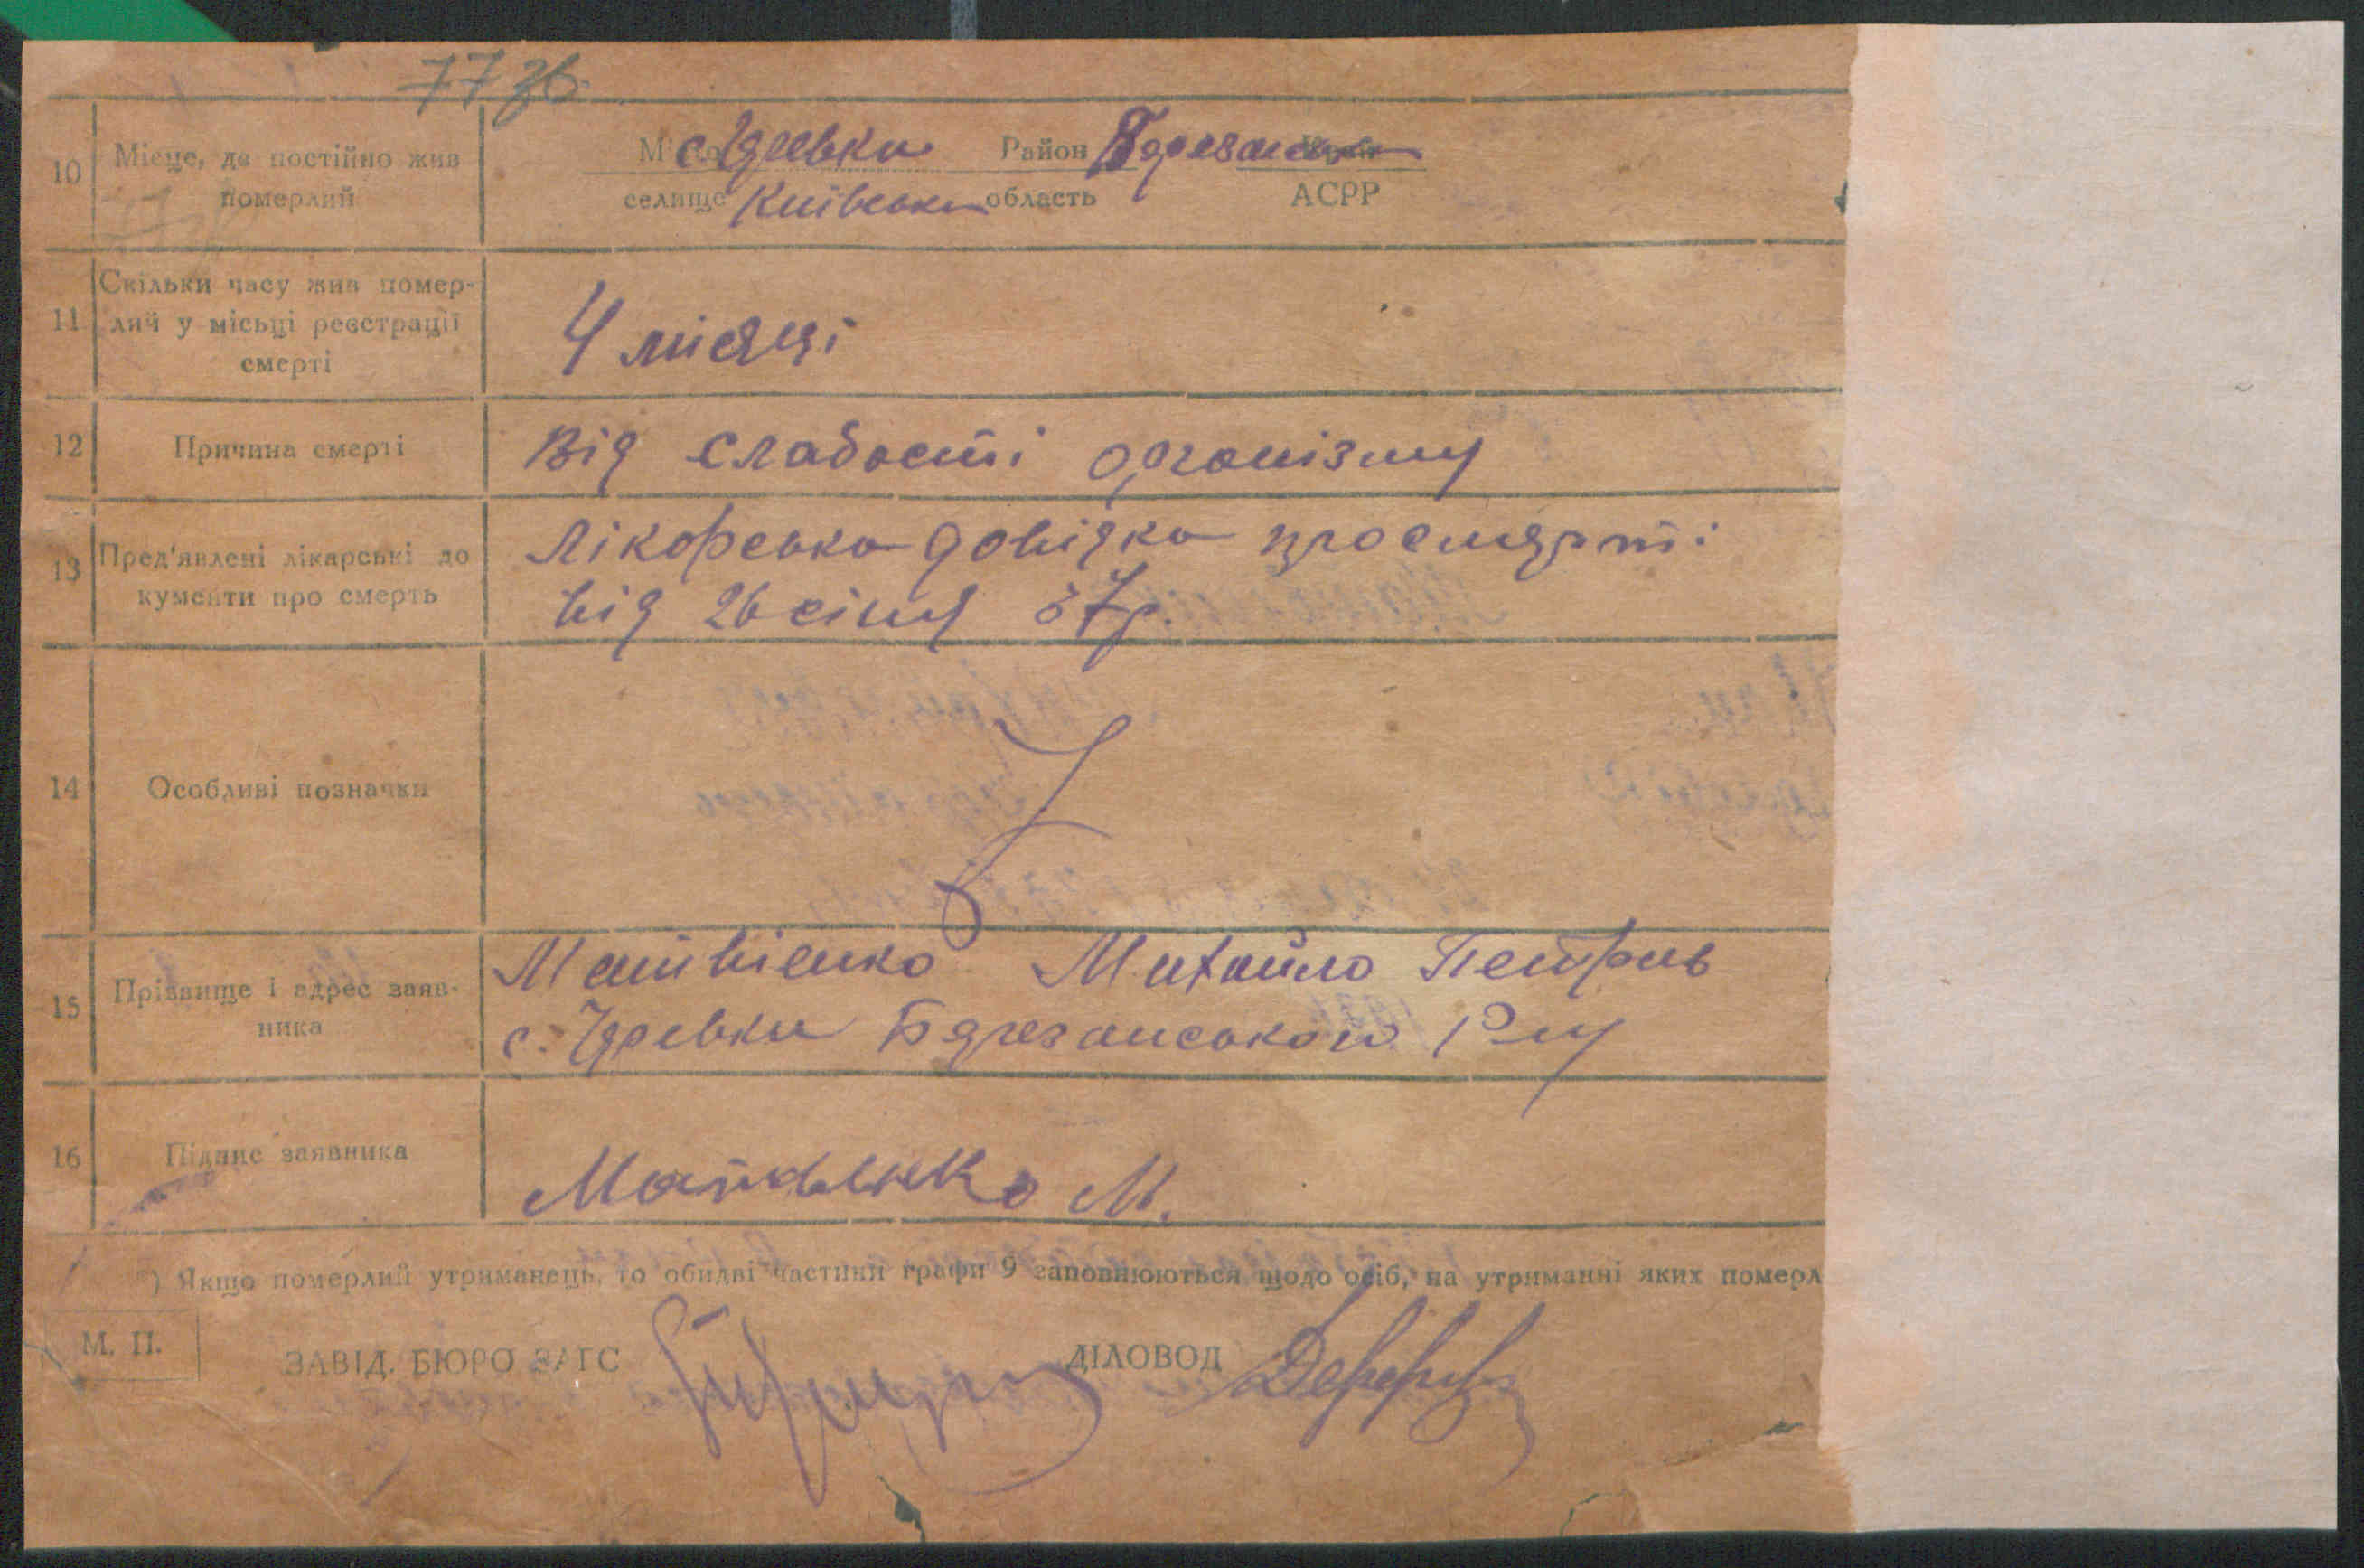 77 зв.
10 Місце, де постійно жив померлий
Місто с. Ядлівка Район Березанський
селище Київська область АСРР
11 Скільки часу жив помер-
лий у місьці реєстрації
смерті
4 місяці
12 Причина смерті
Від слабості організму
13 Пред'явлені лікарські до
кументи про смерть
Лікорська довідка про смерть
від 26 січня 37р.
14 Особливі позначки
15 Прізвище і адрес заяв-
ника
Матвієнко Михайло Петров
с. Ядловки Березанського Р-ну
16 Підпис заявника
Матвиенко М.
*) Якщо померлий утриманець, то обидві частини графи 9 заповнюються щодо осіб, на утриманні яких померл
М. П.
ЗАВІД. БЮРО ЗАГС
ДІЛОВОД